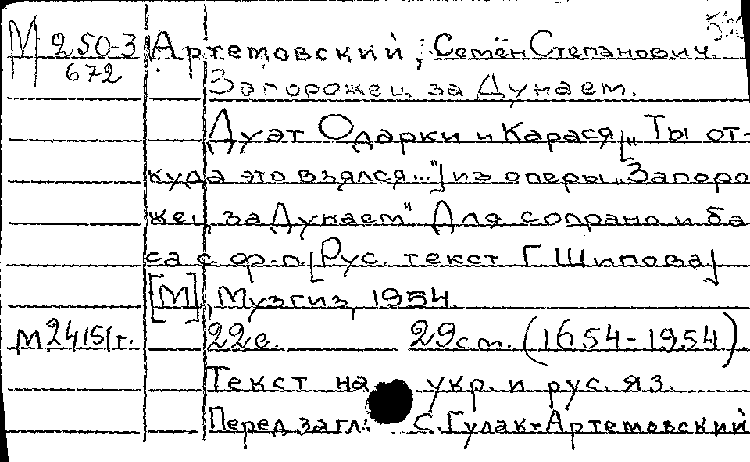 М 250-3 Артемовский, Семён Степанович.
672 Запорожец за Дунаем.
Дуэт Одарки и Карася [„Ты от-
куда это взялся..."] из оперы „Запоро
жец за Дунаем" Для сопрано и ба
са с ф-п. [Рус. текст Г. Шипова]
[М], Музгиз, 1954.
М2415/г. 22с. 29см. (1654-1954)
Текст на укр. и рус. яз.
Перед загл.: С. Гулак-Артемовский